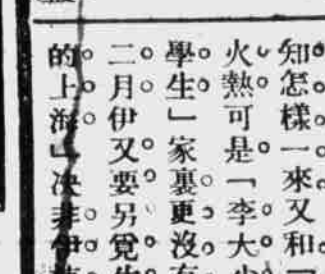 知怎樣一來又和
火熱可是「李大小
學生」家裏更沒有
二月伊又要另覓
的上海」决非伊